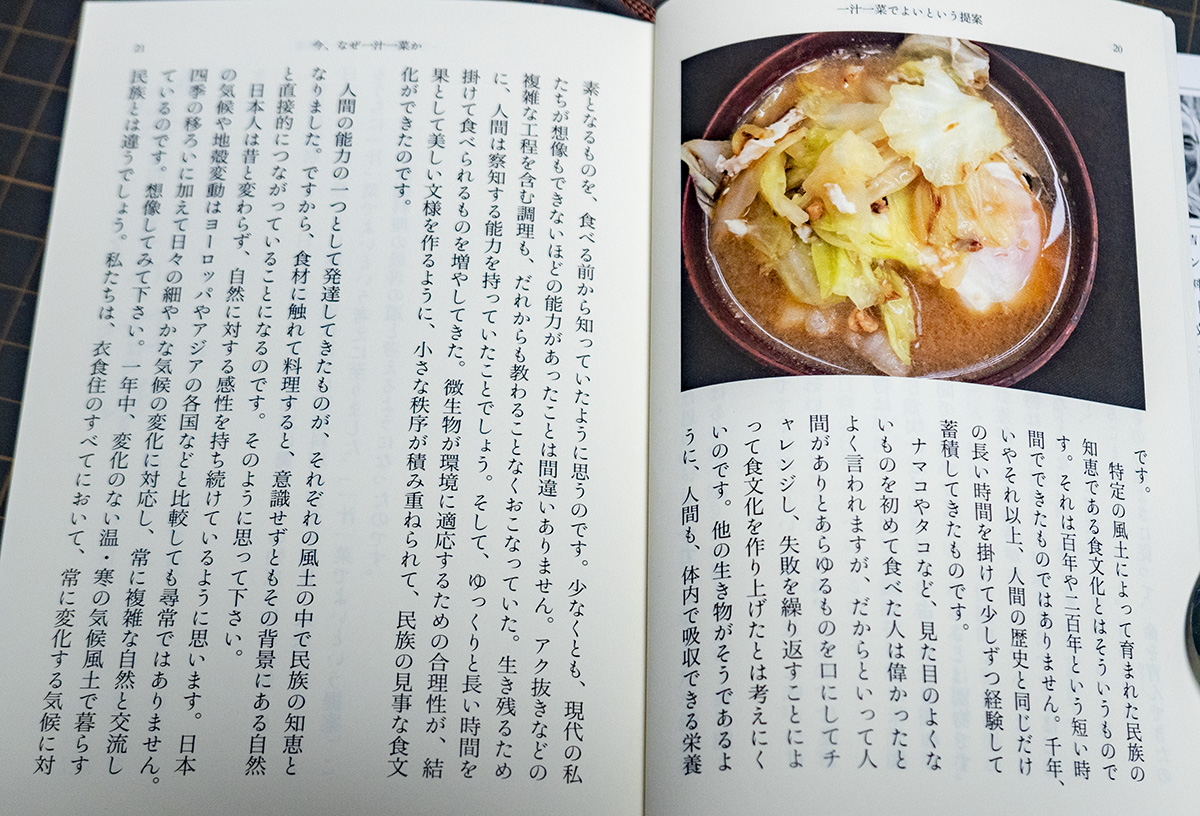 一汁一菜でよいという提案
20
です。
特定の風土によって育まれた民族の
知恵である食文化とはそういうもので
す。それは百年や二百年という短い時
間でできたものではありません。千年、
いやそれ以上、人間の歴史と同じだけ
の長い時間を掛けて少しずつ経験して
蓄積してきたものです。
ナマコやタコなど、見た目のよくな
いものを初めて食べた人は偉かったと
よく言われますが、だからといって人
間がありとあらゆるものを口にしてチ
ャレンジし、失敗を繰り返すことによ
って食文化を作り上げたとは考えにく
いのです。他の生き物がそうであるよ
うに、人間も、体内で吸収できる栄養
今、なぜ一汁一菜か
21
素となるものを、食べる前から知っていたように思うのです。少なくとも、現代の私
たちが想像もできないほどの能力があったことは間違いありません。アク抜きなどの
複雑な工程を含む調理も、だれからも教わることなくおこなっていた。生き残るため
に、人間は察知する能力を持っていたことでしょう。そして、ゆっくりと長い時間を
掛けて食べられるものを増やしてきた。微生物が環境に適応するための合理性が、結
果として美しい文様を作るように、小さな秩序が積み重ねられて、民族の見事な食文
化ができたのです。
人間の能力の一つとして発達してきたものが、それぞれの風土の中で民族の知恵と
なりました。ですから、食材に触れて料理すると、意識せずともその背景にある自然
と直接的につながっていることになるのです。そのように思って下さい。
日本人は昔と変わらず、自然に対する感性を持ち続けているように思います。日本
の気候や地殻変動はヨーロッパやアジアの各国などと比較しても尋常ではありません。
四季の移ろいに加えて日々の細やかな気候の変化に対応し、常に複雑な自然と交流し
ているのです。想像してみて下さい。一年中、変化のない温・寒の気候風土で暮らす
民族とは違うでしょう。私たちは、衣食住のすべてにおいて、常に変化する気候に対